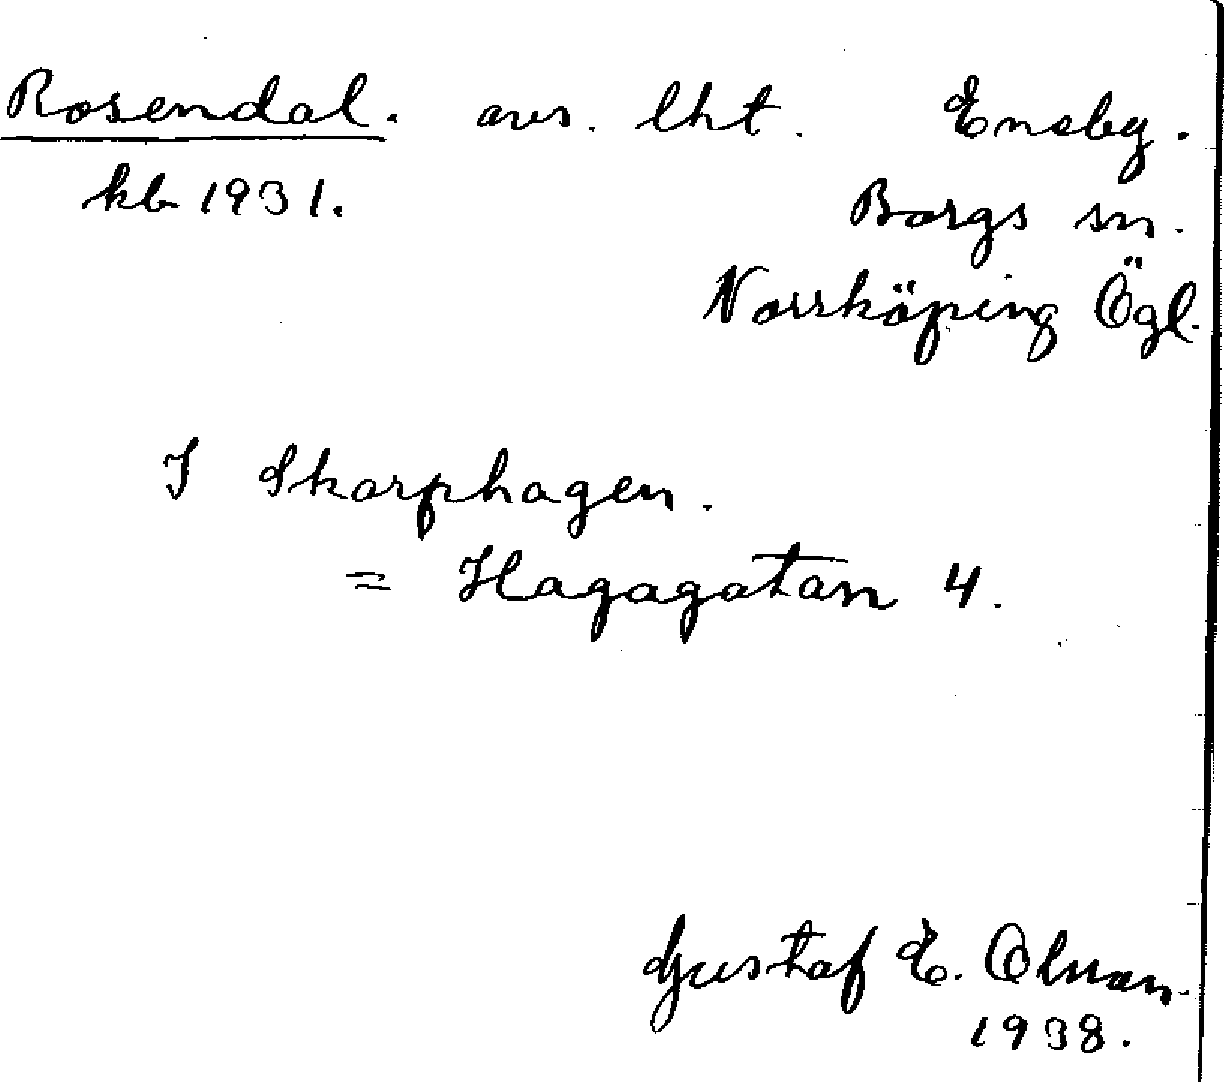 Rosendal. avs. lht. Eneby.
kb 1931. Borgs sn.
Norrköping Ögl.
I Skarphagen.
= Hagagatan 4.
Gustaf E. Olsson.
1938.